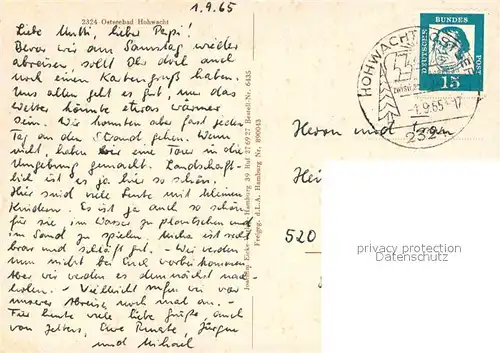 1.9.65
2324 Ostseebad Hohwacht
Liebe Mutti, lieber Papi!
Bevor wir am Samstag wieder
abreisen, sollt Ihr doch auch
noch einen Kartengruß haben.
Uns allen geht es gut, nur das
Wetter könnte etwas wärmer
sein. Wir konnten aber fast jeden
Tag an den Strand gehen. Wenn
nicht, haben wir eine Tour in die
Umgebung gemacht. Landschaft-
lich ist es ja hier so schön.
Hier sind viele Leute mit kleinen
Kindern. Es ist ja auch so schön
für sie im Wasser zu plantschen und
im Sand zu spielen. Micha ist recht
brav und schläft gut. - Wir werden
nun nicht bei Euch vorbeikommen
Aber wir werden es demnächst nach-
holen. - Vielleicht rufen wir vor
unserer Abreise noch mal an. -
Für heute viele liebe Grüße, auch
von Eure Renate, Jürgen
und Michael
Hamburg 39, Ruf 27 69 27 Bestell-Nr. 6435
Freigeg. d. L.A. Hamburg Nr. 890043
HOHWACHT OSTSEE
-1.9.65-17
232
DEUTSCHE BUNDES POST
15
Herrn und Frau
520
privacy protection
privacy protection